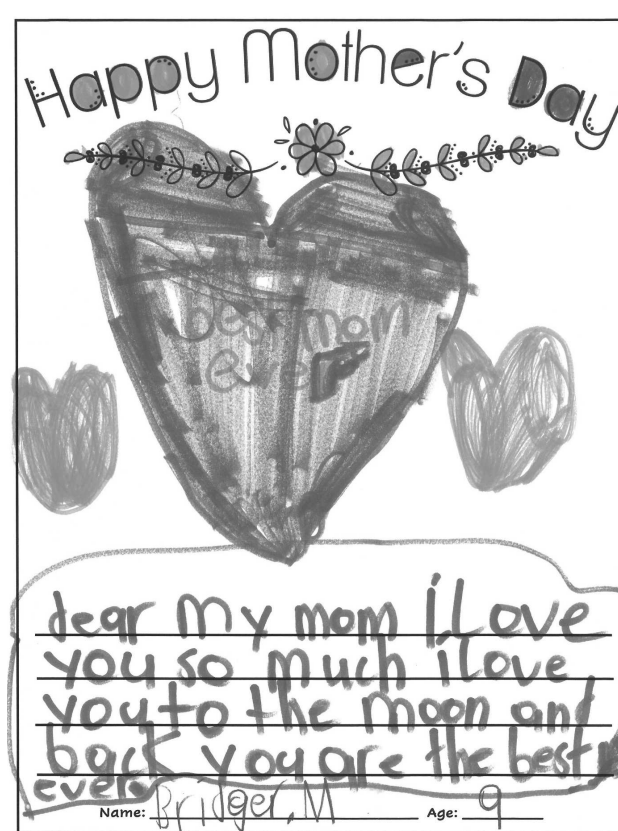 Happy Mother's Day
best mom
ever
dear my mom i Love
you so much i love
you to the moon and
back you are the best
ever.
Name: Bridger, M Age: 9